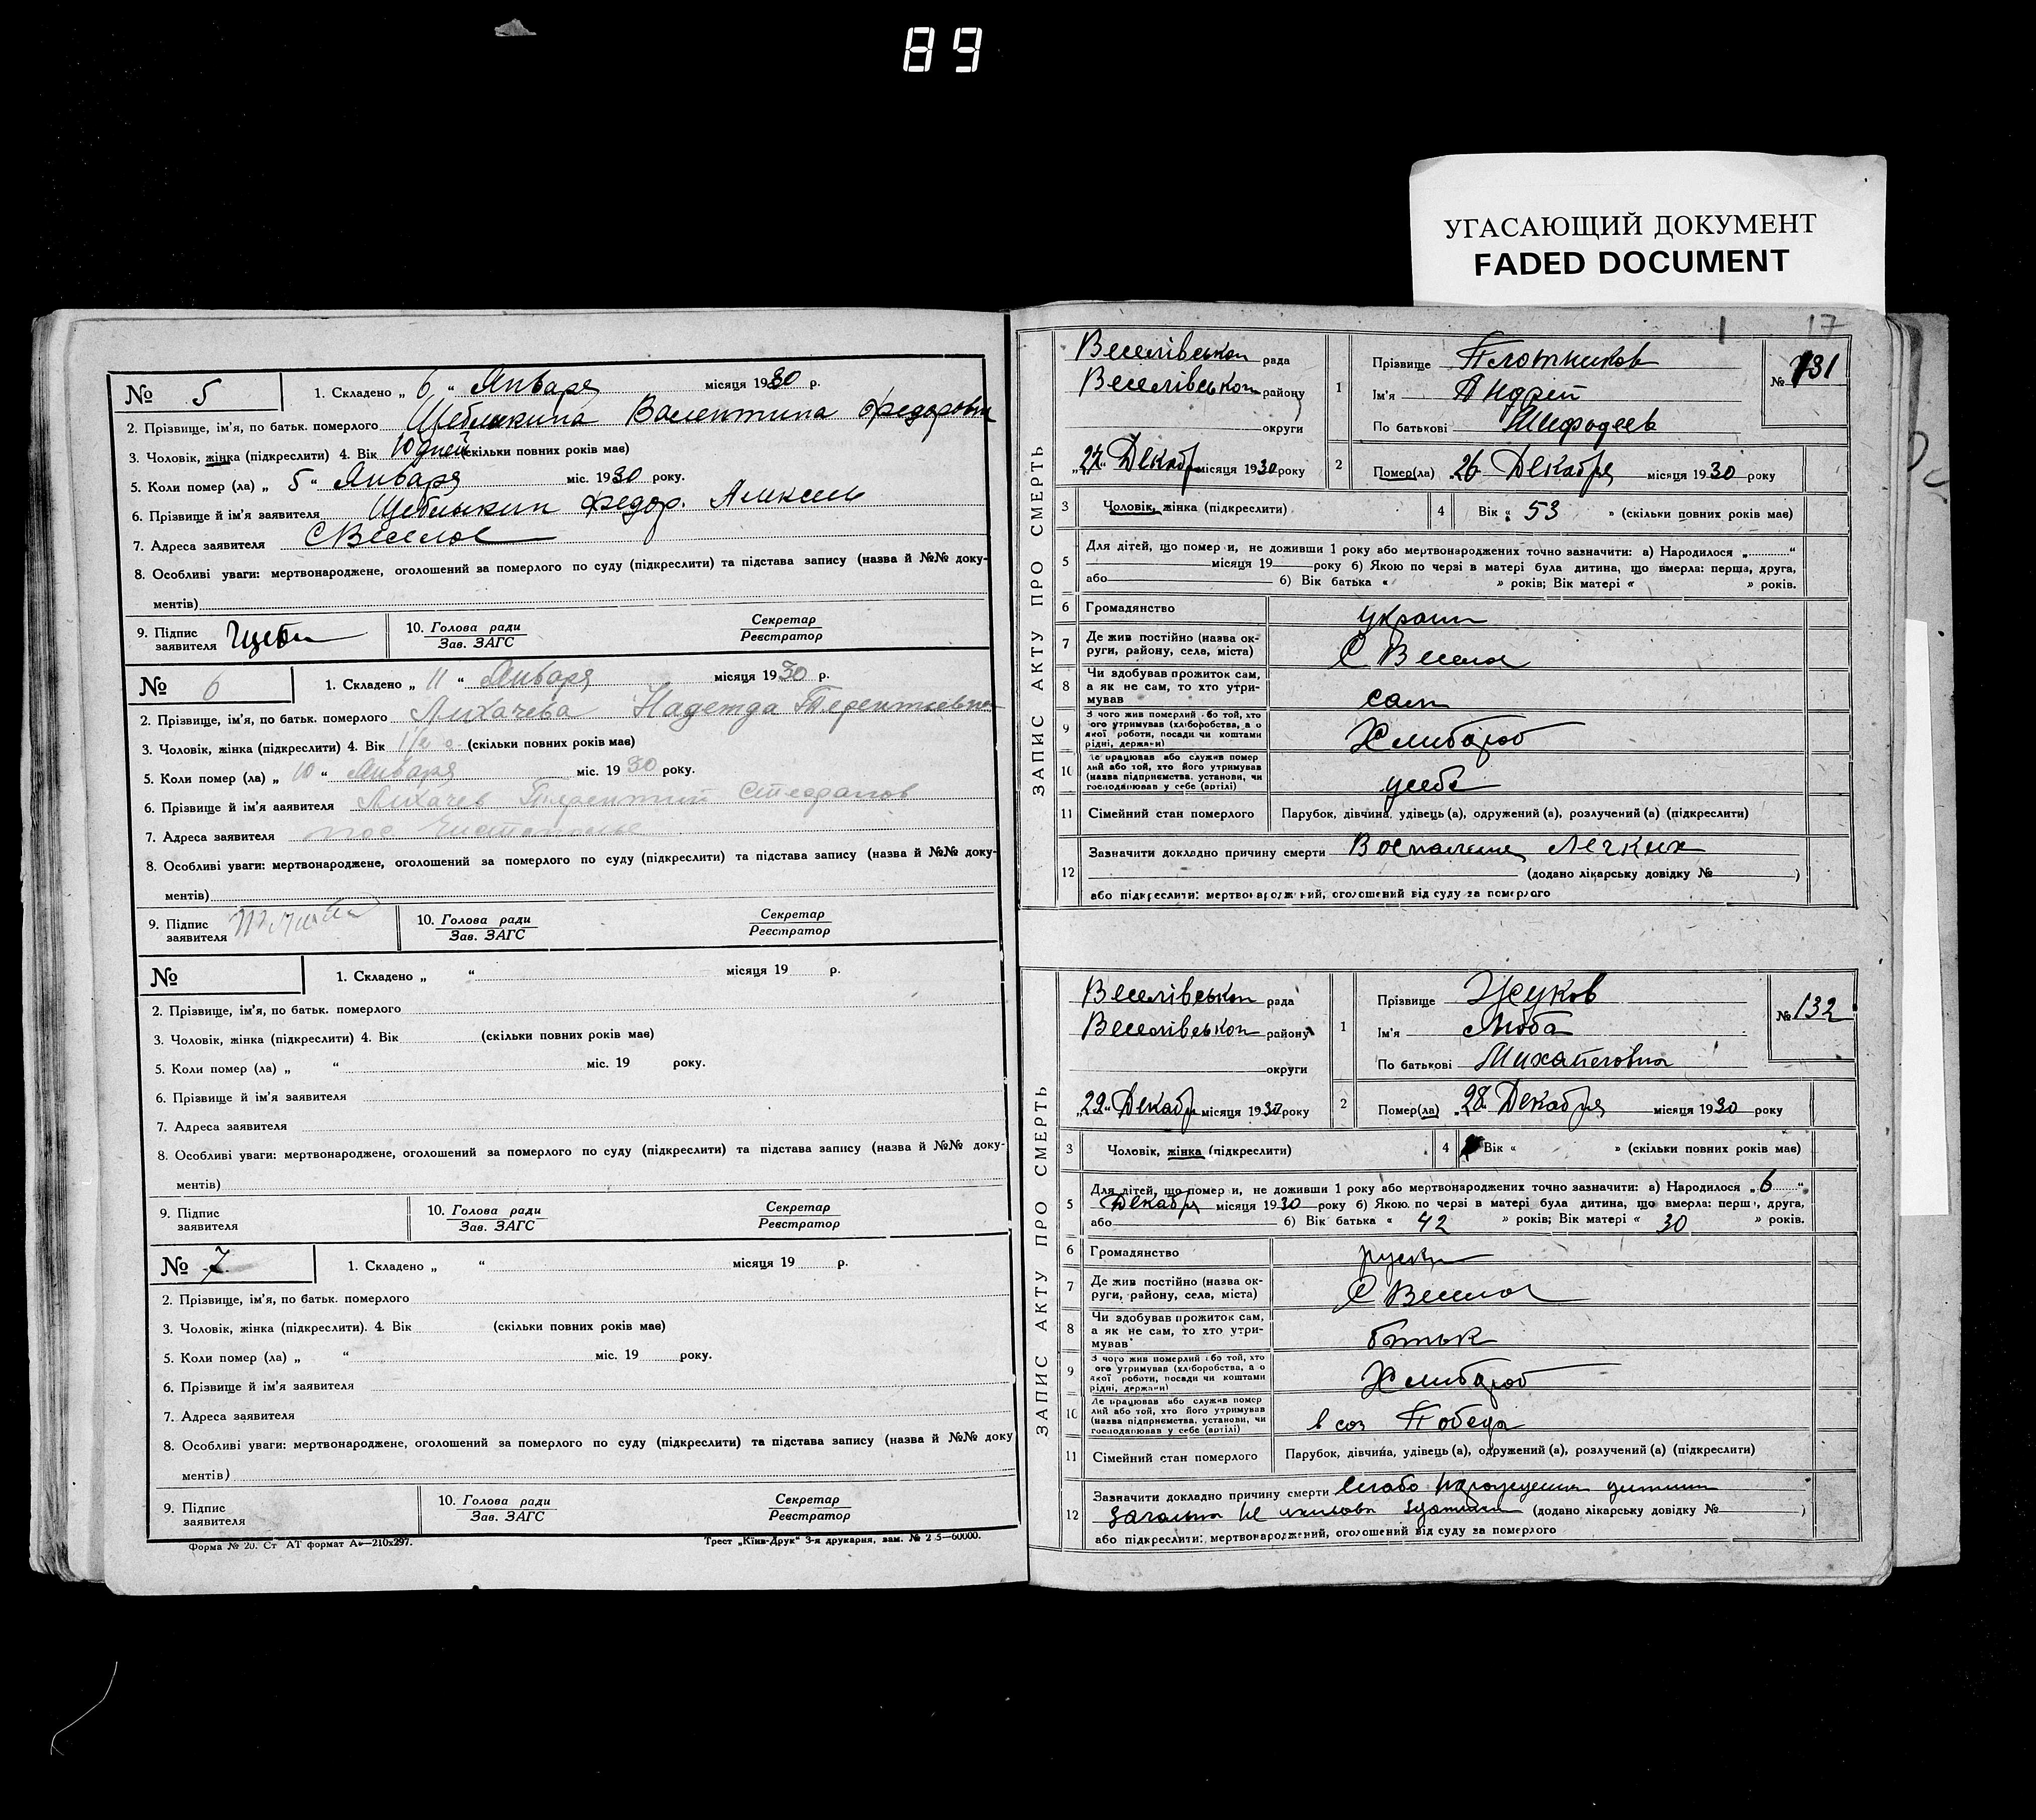 89
УГАСАЮЩИЙ ДОКУМЕНТ
FADED DOCUMENT
№ 5
1. Складено „ 6 “ Января місяця 1930 р.
2. Прізвище, ім'я, по батьк. померлого Щеблыкина Валентина Федоровн
3. Чоловік, жінка (підкреслити) 4. Вік 10 дней (скільки повних років має)
5. Коли помер (ла) „ 5 “ Января міс. 1930 року.
6. Прізвище й ім'я заявителя Щеблыкин Федор. Алексеев
7. Адреса заявителя С Веселое
8. Особливі уваги: мертвонароджене, оголошений за померлого по суду (підкреслити) та підстава запису (назва й №№ доку-
ментів)
9. Підпис заявителя
10. Голова ради
Зав. ЗАГС
Секретар
Реєстратор
№ 6
1. Складено „ 11 “ Января місяця 1930 р.
2. Прізвище, ім'я, по батьк. померлого Лихачева Надежда Терентиевна
3. Чоловік, жінка (підкреслити) 4. Вік 1/2 (скільки повних років має)
5. Коли помер (ла) „ 10 “ Января міс. 1930 року.
6. Прізвище й ім'я заявителя Лихачев Терентий Стефанов
7. Адреса заявителя пос Чистополье
8. Особливі уваги: мертвонароджене, оголошений за померлого по суду (підкреслити) та підстава запису (назва й №№ доку-
ментів)
9. Підпис заявителя
10. Голова ради
Зав. ЗАГС
Секретар
Реєстратор
№
1. Складено „ “ місяця 19 р.
2. Прізвище, ім'я, по батьк. померлого
3. Чоловік, жінка (підкреслити) 4. Вік (скільки повних років має)
5. Коли помер (ла) „ “ міс. 19 року.
6. Прізвище й ім'я заявителя
7. Адреса заявителя
8. Особливі уваги: мертвонароджене, оголошений за померлого по суду (підкреслити) та підстава запису (назва й №№ доку-
ментів)
9. Підпис заявителя
10. Голова ради
Зав. ЗАГС
Секретар
Реєстратор
№ 7
1. Складено „ “ місяця 19 р.
2. Прізвище, ім'я, по батьк. померлого
3. Чоловік, жінка (підкреслити). 4. Вік (скільки повних років має)
5. Коли помер (ла) „ “ міс. 19 року.
6. Прізвище й ім'я заявителя
7. Адреса заявителя
8. Особливі уваги: мертвонароджене, оголошений за померлого по суду (підкреслити) та підстава запису (назва й №№ доку
ментів)
9. Підпис заявителя
10. Голова ради
Зав. ЗАГС
Секретар
Реєстратор
Форма № 20. Ст АТ формат А4—210х297.
Трест „Київ-Друк“ 3-я друкарня, зам. № 2 5—60000.
17
ЗАПИС АКТУ ПРО СМЕРТЬ
Веселівськоп рада
Веселівськоп району
округи
„27“ Декабр місяця 1930 року
1
Прізвище Плотников
Ім'я Андрей
По батькові
№ 131
2 Помер(ла) 26 Декабря місяця 1930 року
3 Чоловік, жінка (підкреслити)
4 Вік « 53 » (скільки повних років має)
5 Для дітей, що померли, не доживши 1 року або мертвонароджених точно зазначити: а) Народилося „ “
місяця 19 року б) Якою по черзі в матері була дитина, що вмерла: перша, друга,
або б) Вік батька « » років; Вік матері « » років.
6 Громадянство украин
7 Де жив постійно (назва ок-
руги, району, села, міста) С Весело
8 Чи здобував прожиток сам,
а як не сам, то хто утри-
мував сам
9 З чого жив померлий або той, хто
його утримував (хліборобства, а о
якої роботи, посади чи коштами
рідні, держави) Хлибороб
10 Де працював або служив помер
лий або той, хто його утримував
(назва підприємства, установи, чи
господарював у себе (артілі) усебе
11 Сімейний стан померлого Парубок, дівчина, удівець (а), одружений (а), розлучений (а) (підкреслити)
12 Зазначити докладно причину смерти Воспаление Легких
(додано лікарську довідку № )
або підкреслити: мертвонароджений, оголошений від суду за померлого
ЗАПИС АКТУ ПРО СМЕРТЬ
Веселівськоп рада
Веселівськоп району
округи
„29“ Декабр місяця 1930 року
1
Прізвище Жуков
Ім'я Люба
По батькові Михайловна
№ 132
2 Помер(ла) „28 Декабря місяця 1930 року
3 Чоловік, жінка (підкреслити)
4 Вік « » (скільки повних років має)
5 Для дітей, що померли, не доживши 1 року або мертвонароджених точно зазначити: а) Народилося „ 6 “
Декабр місяця 1930 року б) Якою по черзі в матері була дитина, що вмерла: перша, друга,
або б) Вік батька « 42 » років; Вік матері « 30 » років.
6 Громадянство
7 Де жив постійно (назва ок-
руги, району, села, міста) С Весело
8 Чи здобував прожиток сам,
а як не сам, то хто утри-
мував батьк
9 З чого жив померлий або той, хто
його утримував (хліборобства, а о
якої роботи, посади чи коштами
рідні, держави) Хлибороб
10 Де працював або служив помер
лий або той, хто його утримував
(назва підприємства, установи, чи
господарював у себе (артілі) в соз Победа
11 Сімейний стан померлого Парубок, дівчина, удівець (а), одружений (а), розлучений (а) (підкреслити)
12 Зазначити докладно причину смерти Слабо
(додано лікарську довідку № )
або підкреслити: мертвонароджений, оголошений від суду за померлого